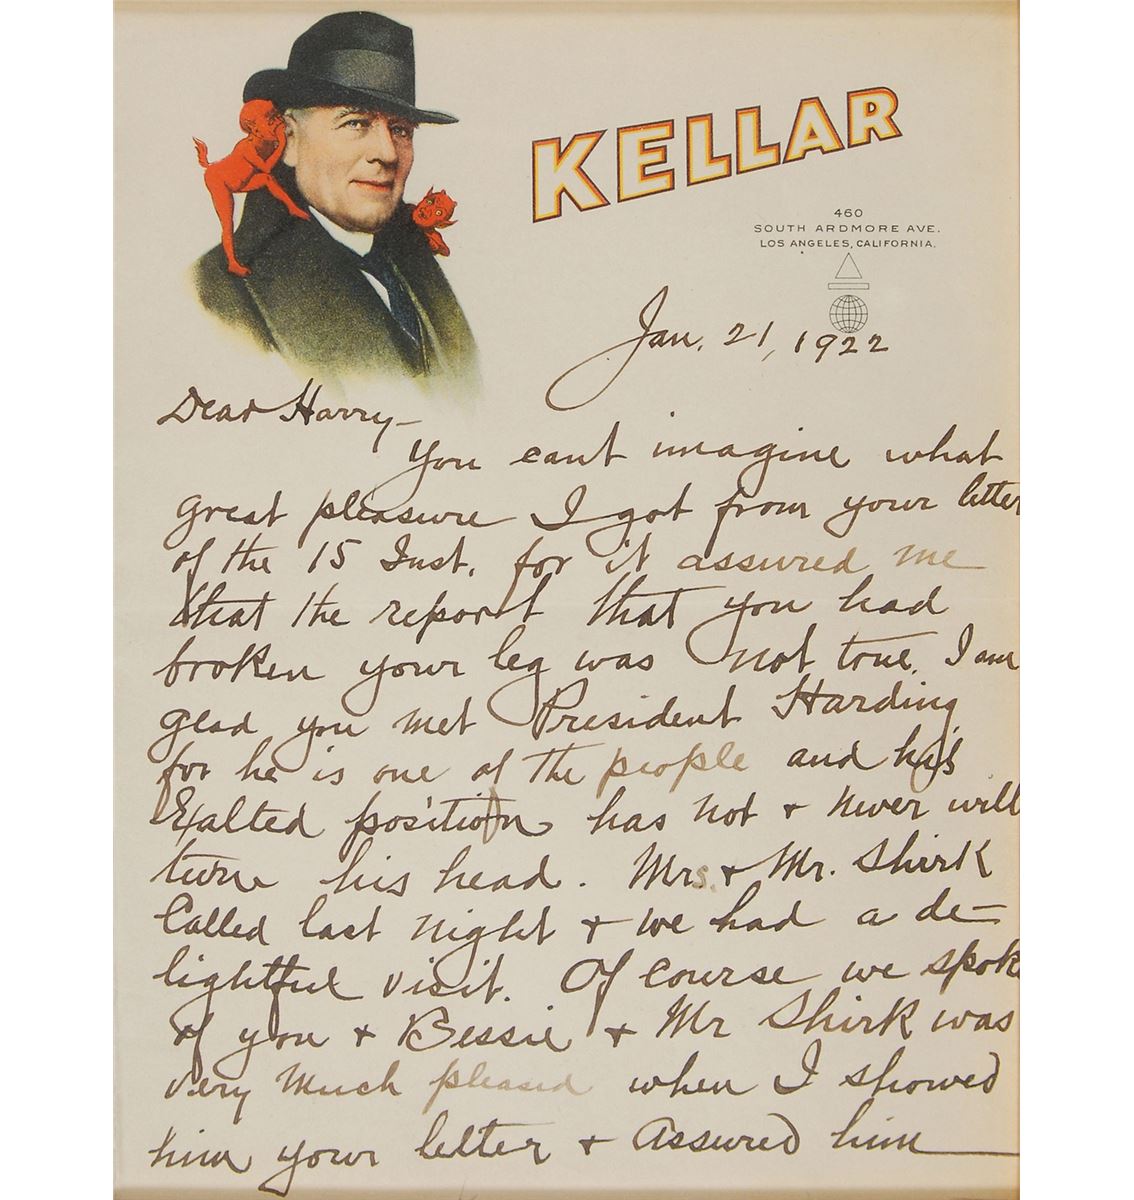 KELLAR
460
SOUTH ARDMORE AVE.
LOS ANGELES, CALIFORNIA.
Jan. 21, 1922
Dear Harry—
You cant imagine what
great pleasure I got from your letter
of the 15 Inst. for it assured me
that the report that you had
broken your leg was not true. I am
glad you met President Harding,
for he is one of the people and his
Exalted position has not + never will
turn his head. Mrs. + Mr. Shirk
Called last night + we had a de-
lightful visit. Of course we spok
of you + Bessie + Mr Shirk was
very much pleased when I showed
him your letter + Assured him